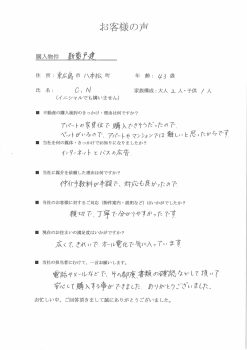 お客様の声
購入物件 新築戸建
住 所：東広島市 八本松 町 年 齢：43歳
氏 名：C.N 家族構成：大人2人・子供1人
(イニシャルでも構いません)
■ 不動産の購入検討のきっかけ・理由は何ですか?
アパートの家賃位で購入できそうだったので、
ペットがいるので、アパートやマンションでは難しいと思ったからです
■ 当社を何の媒体・きっかけでお知りになりましたか?
インターネットとバスの広告
■ 当社に媒介を依頼した理由は何ですか?
仲介手数料が半額で、対応も良かったので
■ 当社のお客様に対するご対応(物件案内・説明など)はいかがでしたか?
親切で、丁寧で分かりやすかったです。
■ 現在のお住まいの満足度はいかがですか?
広くて、きれいで、オール電化で気に入っています
■ 当社の担当者にむけて、一言お願いします。
電話やメールなどで、その都度書類の確認などして頂いて
安心して購入する事ができました。ありがとうございました。
お忙しい中、ご回答頂きまして誠にありがとうございました。